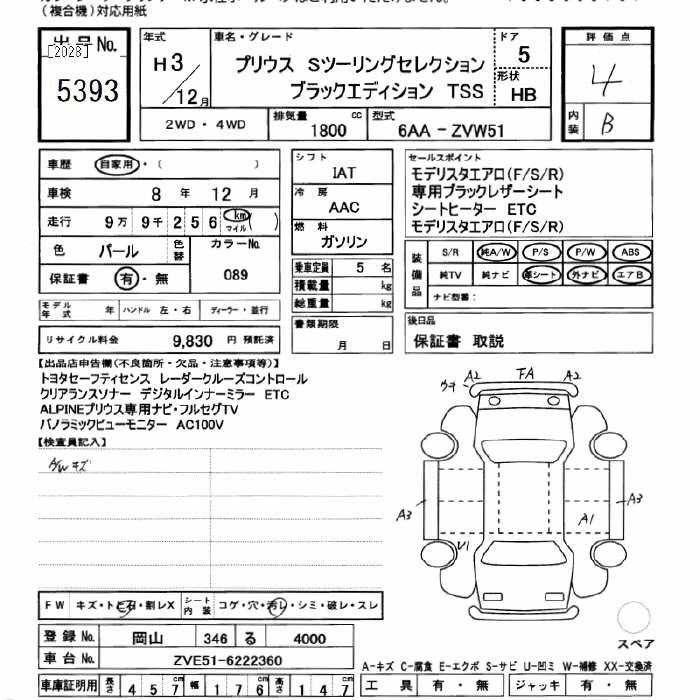 (複合機)対応用紙
出品No.
[2028]
5393
年式
H3/12月
車名・グレード
プリウス Sツーリングセレクション
ブラックエディション TSS
ドア
5
形状
HB
2WD・4WD
排気量
1800 cc
型式
6AA-ZVW51
評価点
4
内装
B
車歴 自家用・( )
車検 8年 12月
走行 9万 9千 2 5 6 km マイル( )
色 パール 色替 カラーNo.
保証書 有・無 089
モデル年式 年 ハンドル 左・右 ディーラー・並行
リサイクル料金 9,830 円 預託済
シフト
IAT
冷房
AAC
燃料
ガソリン
乗車定員 5 名
積載量 kg
総重量 kg
書類期限
月 日
セールスポイント
モデリスタエアロ(F/S/R)
専用ブラックレザーシート
シートヒーター ETC
モデリスタエアロ(F/S/R)
装備品 S/R 純A/W P/S P/W ABS
純TV 純ナビ 革シート 外ナビ エアB
ナビ型番:
後日品
保証書 取説
【出品店申告欄(不良箇所・欠品・注意事項等)】
トヨタセーフティセンス レーダークルーズコントロール
クリアランスソナー デジタルインナーミラー ETC
ALPINEプリウス専用ナビ・フルセグTV
パノラミックビューモニター AC100V
【検査員記入】
A/W キズ
ウキ A2 FA A2
A3 A3
A1
U1
スペア
FW キズ・トビ石・割レX シート内装 コゲ・穴・汚レ・シミ・破レ・スレ
登録No. 岡山 346 る 4000
車台No. ZVE51-6222360
A-キズ C-腐食 E-エクボ S-サビ U-凹ミ W-補修 XX-交換済
車庫証明用 長さ 4 5 7 cm 幅 1 7 6 cm 高さ 1 4 7 cm
工具 有・無 ジャッキ 有・無